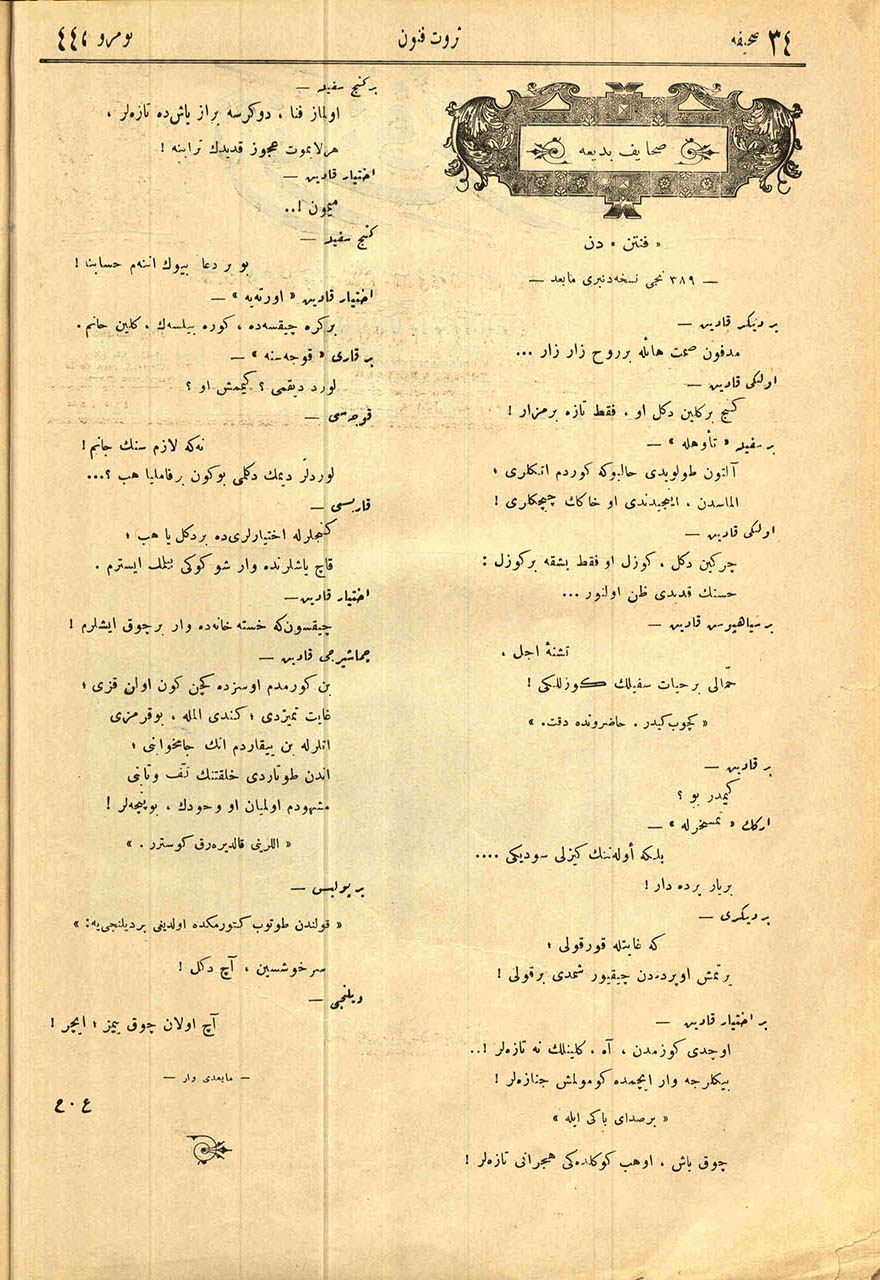 صحیفه ٣٤
ثروت فنون
نومرو ٤٤١
صحایف بدیعه
« فنتن » دن
— ٣٨٩ نجی نسخه‌دنبری مابعد —
بر دیگر قادین —
مدفون صمت هائله برروح زار زار ...
اولكی قادین —
گنج برگلین دكل او ، فقط تازه برمزار !
بر سفیه « تأوهله » —
آلتون طولویدی حالبوكه كوردم اتكلری ؛
الماسدن ، اینجیدندی او خاكك چیچكلری !
اولكی قادین —
چركین دكل ، كوزل او فقط بشقه بركوزل :
حسنك قدیدی ظن اولنور ...
بر سیاهپوس قادین —
تشنۀ اجل ،
حمّالی برحیات سفیلك كوزللكی !
« كچوب كیدر . حاضرونده دقت. »
بر قادین —
كیمدر بو ؟
اركك « تمسخرله » —
بلكه أوله‌ننك كیزلی سودیكی ....
بریار پرده دار !
بر دیگری —
كه غایتله قورقولی ؛
یرتمش اوپرده‌دن چیقیور شمدی برقولی !
بر اختیار قادین —
اوچدی كوزمدن ، آه ، كلینلك نه تازه‌لر !..
بیكلرجه وار ایچمده كومولمش جنازه‌لر !
« برصدای باكی ایله »
چوق باش ، اوهب كوكلده‌كی هجرانی تازه‌لر !
بر گنج سفیه —
اولماز فنا ، دوكرسه براز یاش‌ده تازه‌لر ،
هرلایموت عجوز قدیدك ترابنه !
اختیار قادین —
میمون !..
گنج سفیه —
بو بر دعا بیوك اننه‌م حسابنا !
اختیار قادین « اورته‌یه » —
بركره چیقسه‌ده ، كوره بیلسه‌ك ، كلین خانم .
بر قاری « قوجه‌سنه » —
لورد دیقمی ؟ كیممش او ؟
قوجه‌سی —
نه‌كه لازم سنك جانم !
لوردلر دیمك دكلمی بوكون برفاملیا هب ؟...
قاریسی —
گنجلرله اختیارلری‌ده بردكل یا هب ؛
قاچ یاشلرنده وار شو كوكی بیلمك ایسترم .
اختیار قادین —
چیقسون‌كه خسته خانه‌ده وار برچوق ایشلرم !
چماشیرجی قادین —
بن كورمدم اوسزده كچن كون اولن قزی ؛
غایت تمیزدی ؛ كندی المله ، بوقرمزی
اللرله بن ییقاردم انك جامخوابنی ؛
اندن طوتاردی خلقتنك تف وتابی
مشهودم اولمیان او وجودك ، بوپنچه‌لر !
« اللرینی قالدیره‌رق كوسترر . »
بر پولیس —
« قولندن طوتوب كتورمكده اولدیغی بردیلنجی‌یه: »
سرخوشسین ، آچ دكل !
دیلنجی —
آچ اولان چوق ییمز ؛ ایچر !
— مابعدی وار —
ع . ح